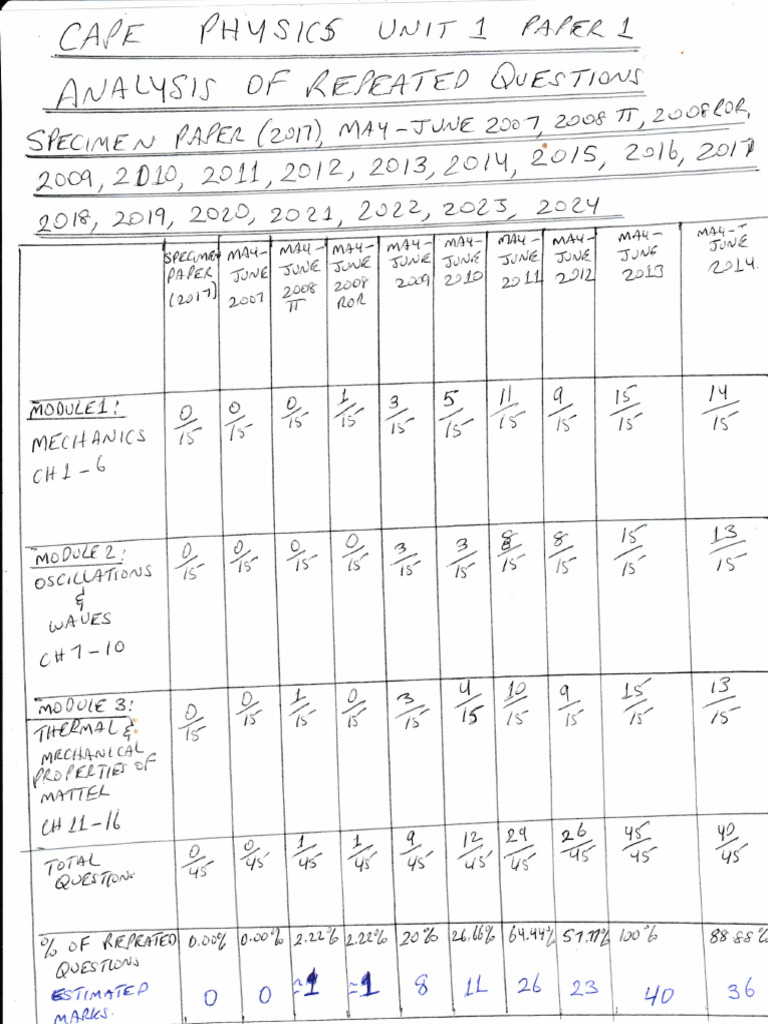 CAPE PHYSICS UNIT 1 PAPER 1
ANALYSIS OF REPEATED QUESTIONS
SPECIMEN PAPER (2017), MAY-JUNE 2007, 2008 π, 2008 ROR,
2009, 2010, 2011, 2012, 2013, 2014, 2015, 2016, 2017
2018, 2019, 2020, 2021, 2022, 2023, 2024
SPECIMEN PAPER (2017) MAY-JUNE 2007 MAY-JUNE 2008 π MAY-JUNE 2008 ROR MAY-JUNE 2009 MAY-JUNE 2010 MAY-JUNE 2011 MAY-JUNE 2012 MAY-JUNE 2013 MAY-JUNE 2014
MODULE 1: 0/15 0/15 0/15 1/15 3/15 5/15 11/15 9/15 15/15 14/15
MECHANICS
CH 1-6
MODULE 2: 0/15 0/15 0/15 0/15 3/15 3/15 8/15 8/15 15/15 13/15
OSCILLATIONS
&
WAVES
CH 7-10
MODULE 3: 0/15 0/15 1/15 0/15 3/15 4/15 10/15 9/15 15/15 13/15
THERMAL &
MECHANICAL
PROPERTIES OF
MATTER
CH 11-16
TOTAL 0/45 0/45 1/45 1/45 9/45 12/45 29/45 26/45 45/45 40/45
QUESTIONS
% OF REPEATED 0.00% 0.00% 2.22% 2.22% 20% 26.66% 64.44% 57.77% 100% 88.88%
QUESTIONS
ESTIMATED 0 0 ≈1 ≈1 8 11 26 23 40 36
MARKS.